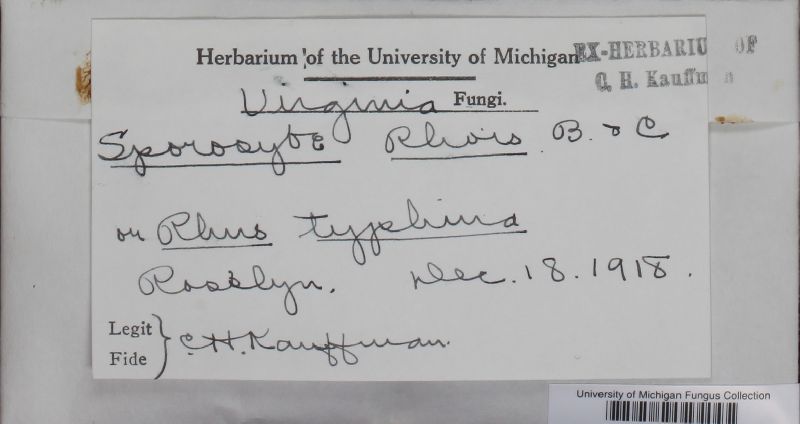 Herbarium of the University of Michigan
EX-HERBARIU OF
C. H. Kauffm n
Virginia Fungi.
Sporocybe Rhois B. & C
on Rhus typhina
Rosslyn. Dec. 18. 1918.
Legit
Fide
C.H. Kauffman.
University of Michigan Fungus Collection